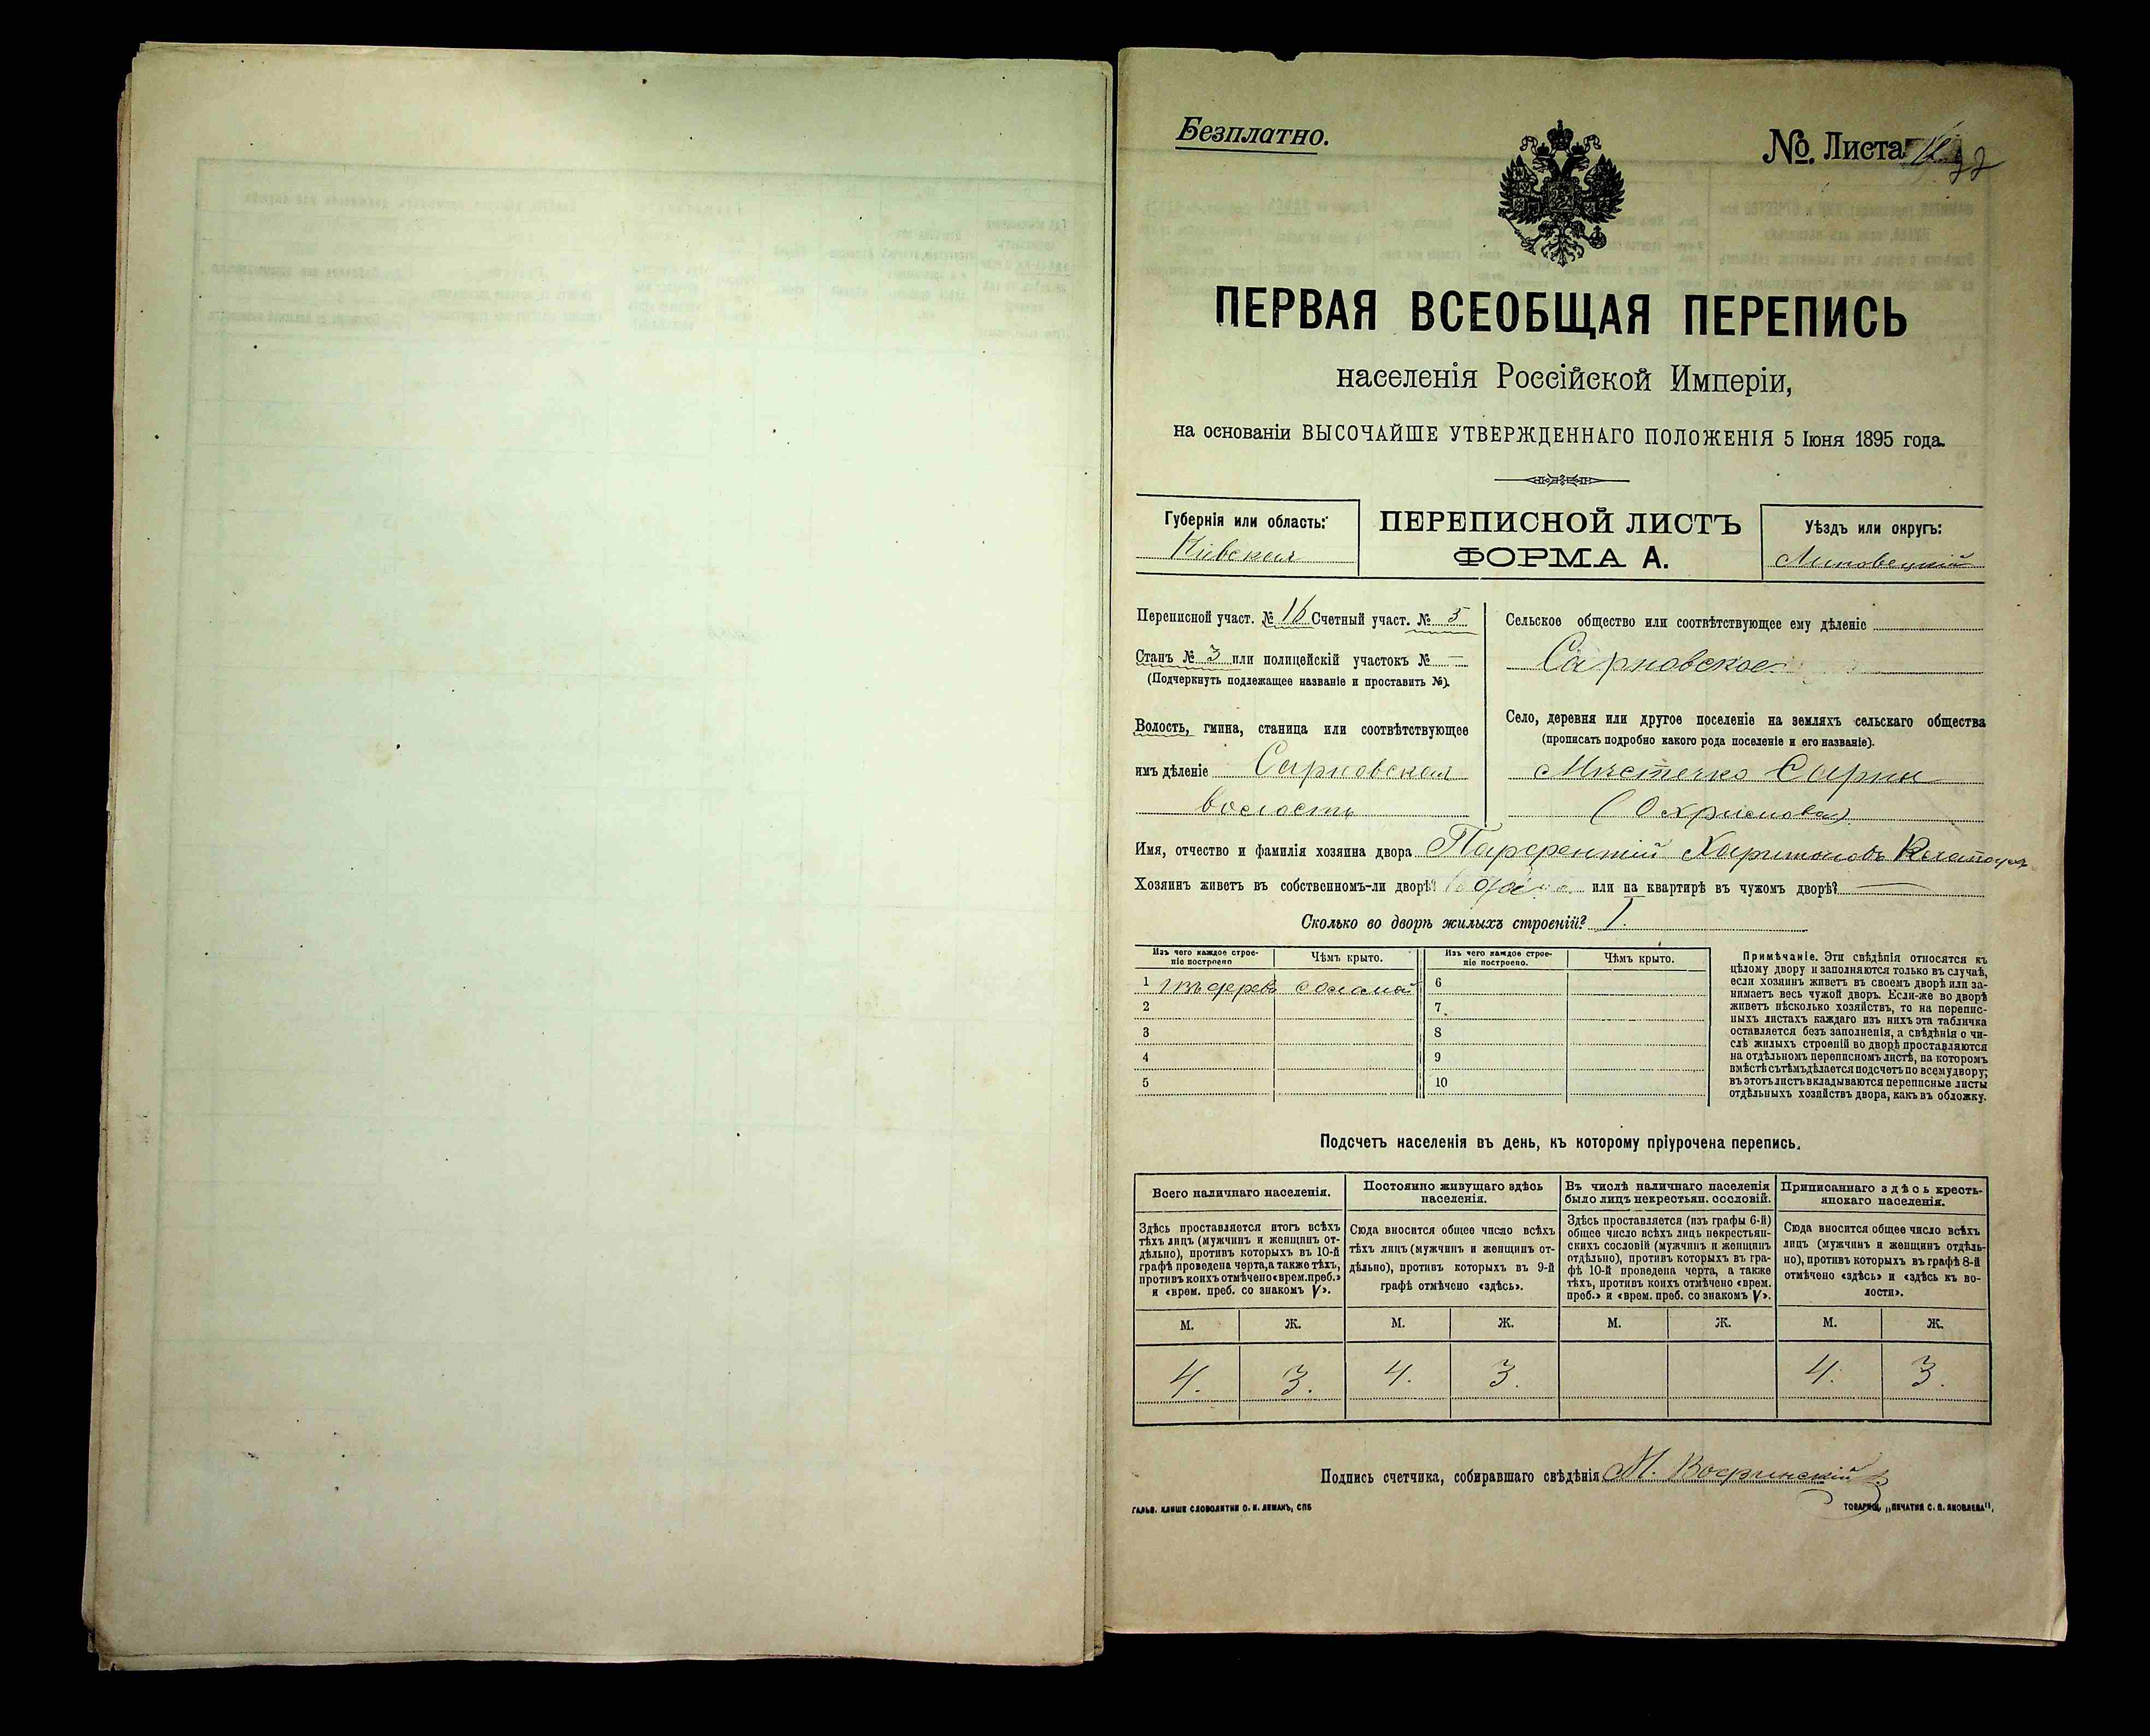 Безплатно.
№. Листа
ПЕРВАЯ ВСЕОБЩАЯ ПЕРЕПИСЬ
населенія Россійской Имперіи,
на основаніи ВЫСОЧАЙШЕ УТВЕРЖДЕННАГО ПОЛОЖЕНІЯ 5 Іюня 1895 года.
Губернія или область:
Кіевская
ПЕРЕПИСНОЙ ЛИСТЪ
ФОРМА А.
Уѣздъ или округъ:
Липовецкій
Переписной участ. № 16 Счетный участ. № 5
Станъ № 3 или полицейскій участокъ № —
(Подчеркнуть подлежащее названіе и проставить №).
Волость, гмина, станица или соотвѣтствующее
имъ дѣленіе Сарновская
волость
Сельское общество или соотвѣтствующее ему дѣленіе
Сарновское
Село, деревня или другое поселеніе на земляхъ сельскаго общества
(прописать подробно какого рода поселеніе и его названіе).
Мѣстечко Сарны
(Охримова)
Имя, отчество и фамилія хозяина двора Парфентій Харитоновъ
Хозяинъ живетъ въ собственномъ-ли дворѣ? или на квартирѣ въ чужомъ дворѣ? —
Сколько во дворѣ жилыхъ строеній? 1.
Изъ чего каждое строе-
ніе построено
Чѣмъ крыто.
Изъ чего каждое строе-
ніе построено.
Чѣмъ крыто.
1 изъ дерева соломой 6
2 7
3 8
4 9
5 10
Примѣчаніе. Эти свѣдѣнія относятся къ
цѣлому двору и заполняются только въ случаѣ,
если хозяинъ живетъ въ своемъ дворѣ или за-
нимаетъ весь чужой дворъ. Если-же во дворѣ
живетъ нѣсколько хозяйствъ, то на перепис-
ныхъ листахъ каждаго изъ нихъ эта табличка
оставляется безъ заполненія, а свѣдѣнія о чи-
слѣ жилыхъ строеній во дворѣ проставляются
на отдѣльномъ переписномъ листѣ, на которомъ
вмѣстѣ съ тѣмъ дѣлается подсчетъ по всему двору;
въ этотъ листъ вкладываются переписные листы
отдѣльныхъ хозяйствъ двора, какъ въ обложку.
Подсчетъ населенія въ день, къ которому пріурочена перепись.
Всего наличнаго населенія.
Здѣсь проставляется итогъ всѣхъ
тѣхъ лицъ (мужчинъ и женщинъ от-
дѣльно), противъ которыхъ въ 10-й
графѣ проведена черта, а также тѣхъ,
противъ коихъ отмѣчено «врем. преб.»
и «врем. преб. со знакомъ V».
Постоянно живущаго здѣсь
населенія.
Сюда вносится общее число всѣхъ
тѣхъ лицъ (мужчинъ и женщинъ от-
дѣльно), противъ которыхъ въ 9-й
графѣ отмѣчено «здѣсь».
Въ числѣ наличнаго населенія
было лицъ некрестьян. сословій.
Здѣсь проставляется (изъ графы 6-й)
общее число всѣхъ лицъ некрестьян-
скихъ сословій (мужчинъ и женщинъ
отдѣльно), противъ которыхъ въ гра-
фѣ 10-й проведена черта, а также
тѣхъ, противъ коихъ отмѣчено «врем.
преб.» и «врем. преб. со знакомъ V».
Приписаннаго здѣсь кресть-
янскаго населенія.
Сюда вносится общее число всѣхъ
лицъ (мужчинъ и женщинъ отдѣль-
но), противъ которыхъ въ графѣ 8-й
отмѣчено «здѣсь» и «здѣсь къ во-
лости».
М. Ж. М. Ж. М. Ж. М. Ж.
4. 3. 4. 3. 4. 3.
Подпись счетчика, собиравшаго свѣдѣнія М.
ГАЛЬВ. КЛИШЕ СЛОВОЛИТНИ О. И. ЛЕМАНЪ, СПБ
ТОВАРИЩ. „ПЕЧАТНЯ С. П. ЯКОВЛЕВА“.